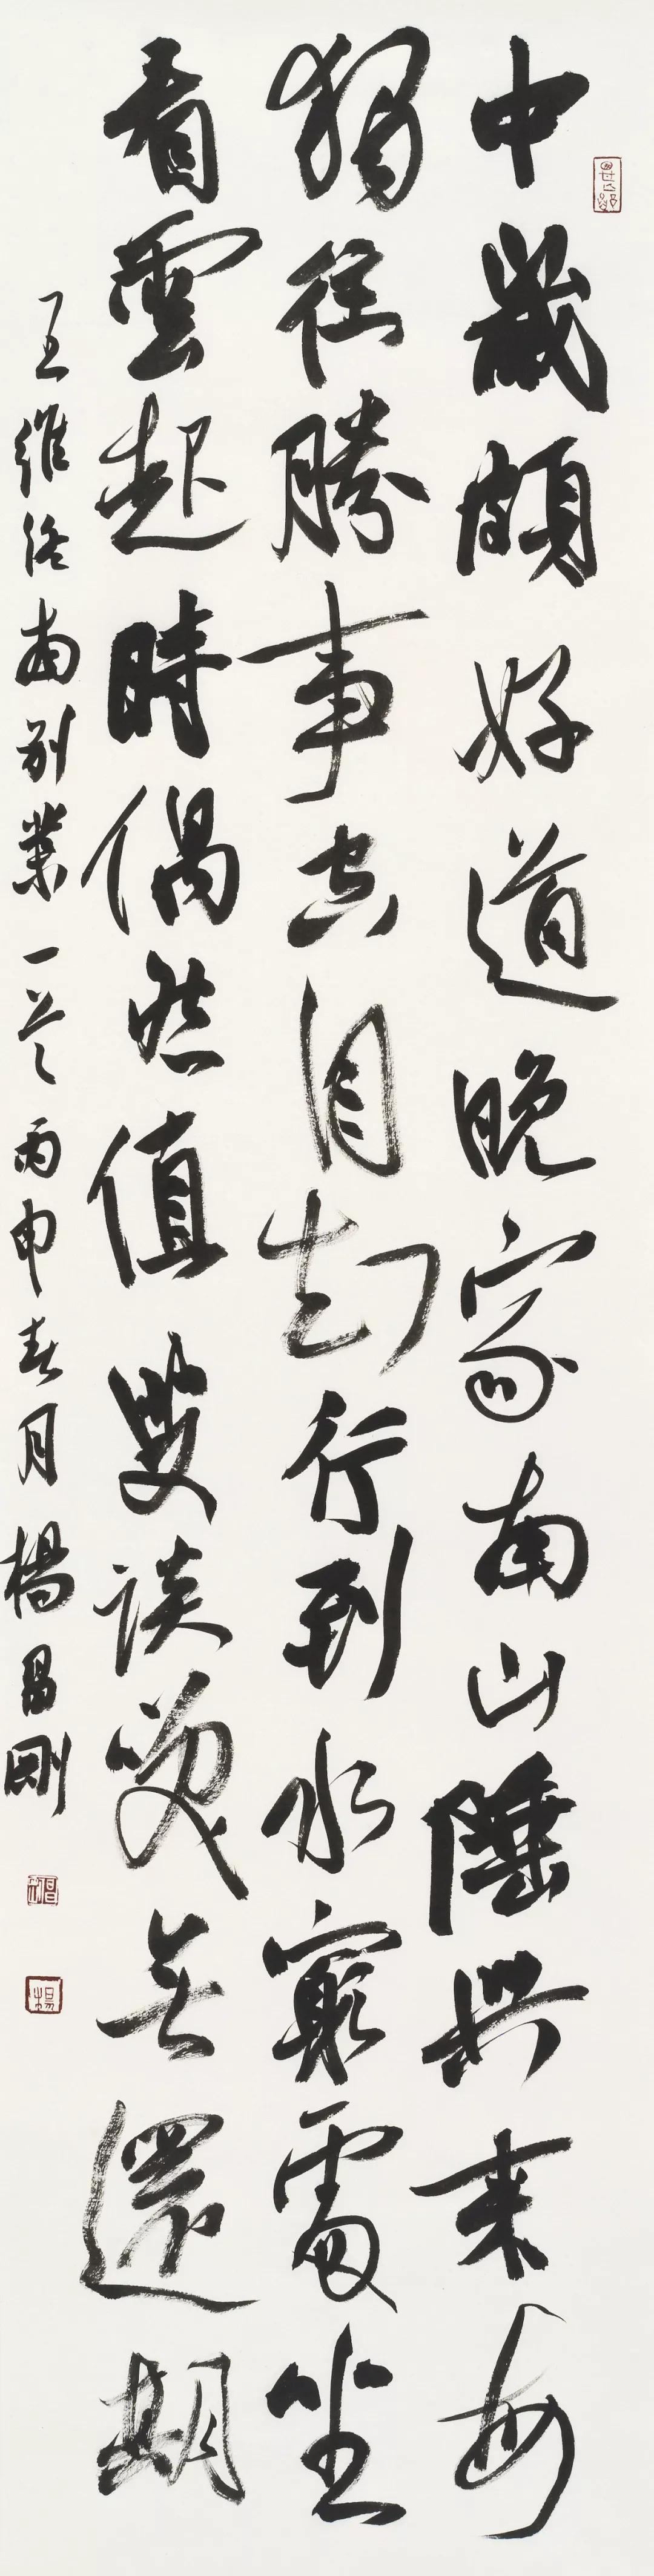 中歲頗好道晚家南山陲興來每
獨往勝事空自知行到水窮處坐
看雲起時偶然值叟談笑無還期
王維終南別業一首丙申春月楊昌剛
楊